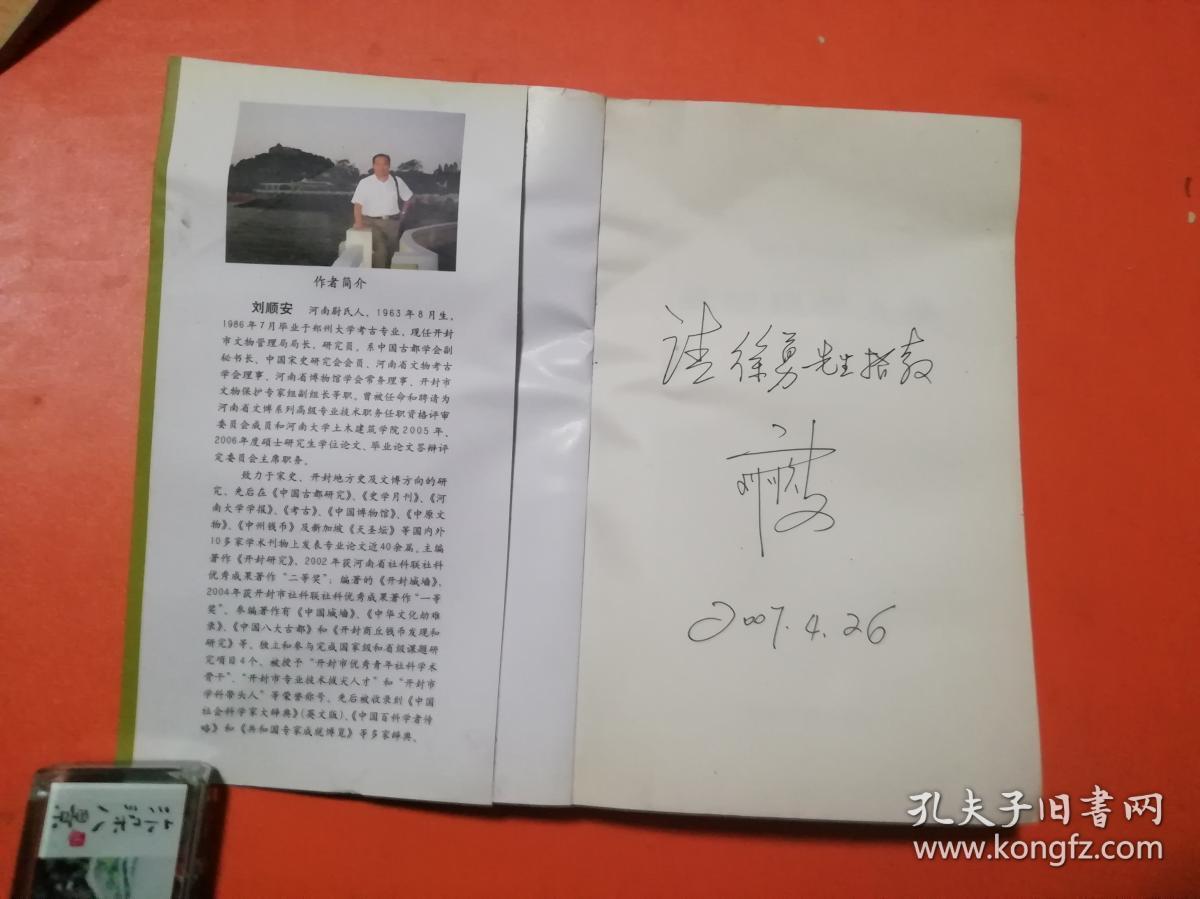 作者简介
刘顺安 河南尉氏人，1963年8月生，
1986年7月毕业于郑州大学考古专业，现任开封
市文物管理局局长，研究员。系中国古都学会副
秘书长、中国宋史研究会会员、河南省文物考古
学会理事、河南省博物馆学会常务理事、开封市
文物保护专家组副组长等职。曾被任命和聘请为
河南省文博系列高级专业技术职务任职资格评审
委员会成员和河南大学土木建筑学院2005年、
2006年度硕士研究生学位论文、毕业论文答辩评
定委员会主席职务。
致力于宋史、开封地方史及文博方向的研
究，先后在《中国古都研究》、《史学月刊》、《河
南大学学报》、《考古》、《中国博物馆》、《中原文
物》、《中州钱币》及新加坡《天圣坛》等国内外
10多家学术刊物上发表专业论文近40余篇。主编
著作《开封研究》，2002年获河南省社科联社科
优秀成果著作“二等奖”；编著的《开封城墙》，
2004年获开封市社科联社科优秀成果著作“一等
奖”。参编著作有《中国城墙》、《中华文化劫难
录》、《中国八大古都》和《开封商丘钱币发现和
研究》等。独立和参与完成国家级和省级课题研
究项目4个。被授予“开封市优秀青年社科学术
骨干”、“开封市专业技术拔尖人才”和“开封市
学科带头人”等荣誉称号。先后被收录到《中国
社会科学家大辞典》(英文版)、《中国百科学者传
略》和《共和国专家成就博览》等多家辞典。
请徐勇先生指教
2007.4.26
孔夫子旧书网
www.kongfz.com